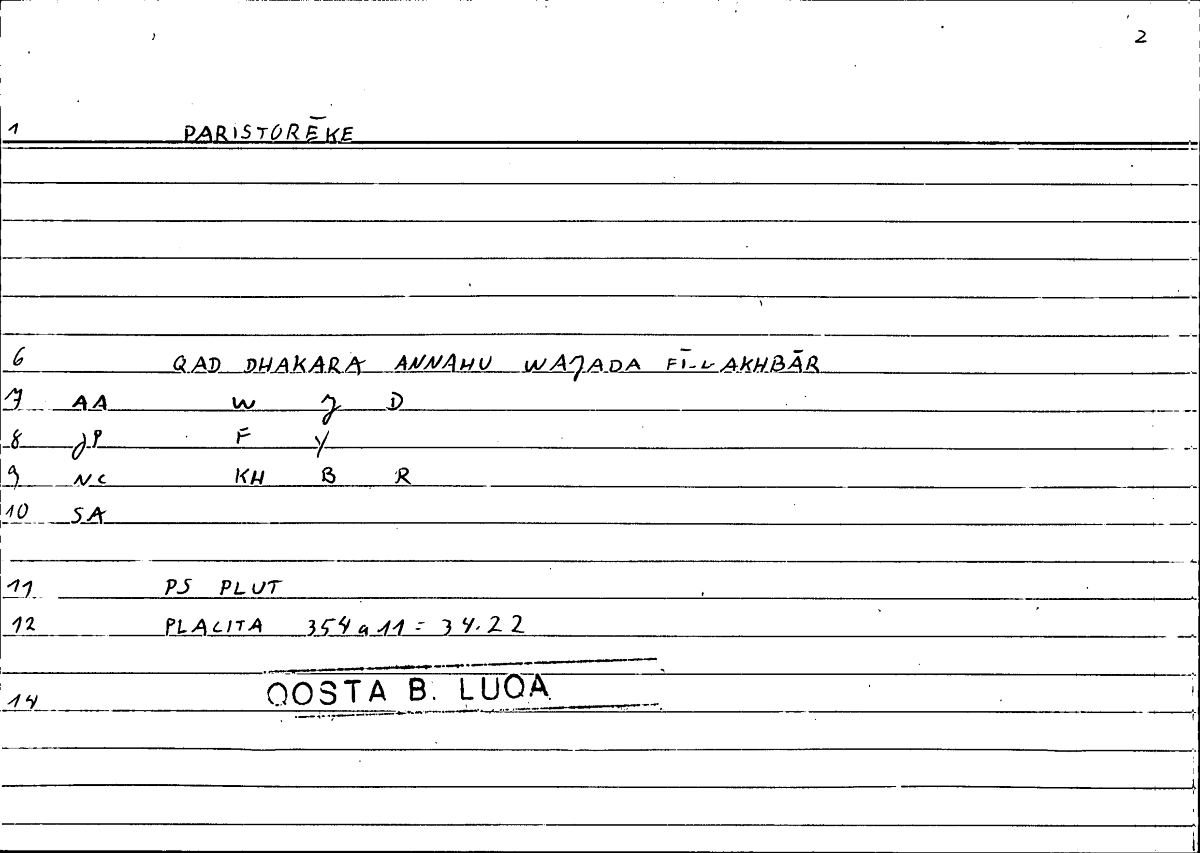 2
1 PARISTORĒKE
6 QAD DHAKARA ANNAHU WAJADA FĪ-L-AKHBĀR
7 AA W J D
8 JP F Y
9 NC KH B R
10 SA
11 PS PLUT
12 PLACITA 354a11 = 34.22
14 QOSTA B. LUQA